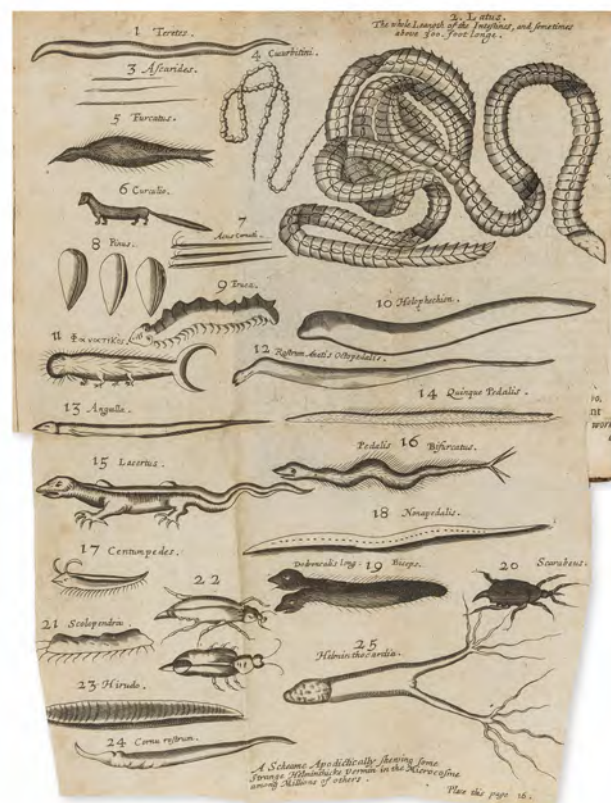 1 Teretes.
2. Latus.
The whole Length of the Intestines, and sometimes
above 300. foot longe.
3 Ascarides.
4 Cucurbitini.
5 Furcatus.
6 Curculio.
7
Acus Cornuti.
8 Pinus.
9 Eruca.
10 Helophechion.
11 Φανοστικός.
12 Rostrum Anatis Octopedalis.
13 Anguilla.
14 Quinque Pedalis.
15 Lacertus.
Pedalis 16 Bifurcatus.
17 Centumpedes.
18 Nonapedalis.
19 Biceps.
20 Scarabeus.
21 Scolopendra.
22
23 Hirudo.
24 Cornu rostrum.
25
Helminthocardia.
A Scheame Apodictically shewing some
Strange Helminthicke Vermin in the Microcosme
among Millions of others.
Place this page 16.
nt
work